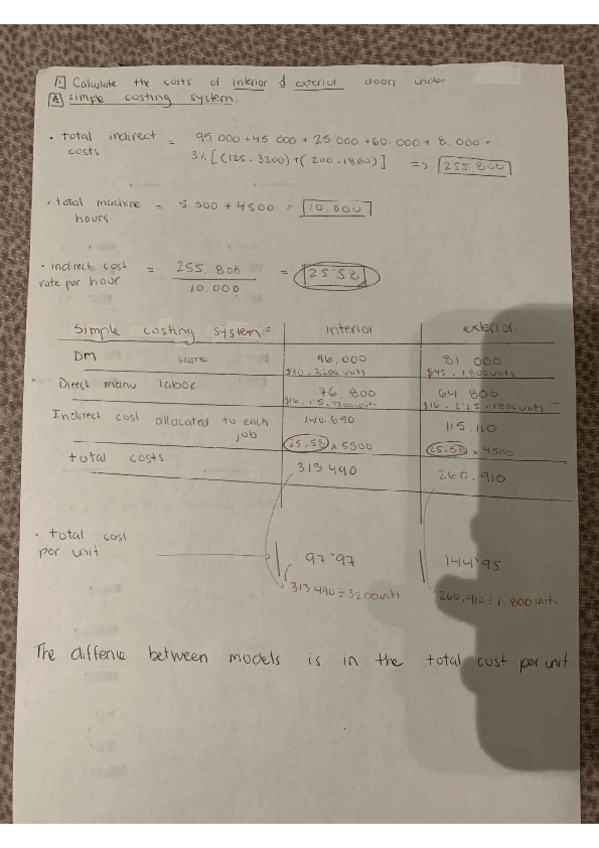 1 Calculate the costs of interior & exterior doors under
A simple costing system.
• total indirect costs = 95.000 + 45 000 + 25.000 + 60.000 + 8.000 +
3% [(125.3200) + (200.1800)] => 255.800
• total machine hours = 5.500 + 4500 = 10.000
• indirect cost rate per hour = 255.800 / 10.000 = 25'58
Simple costing system = interior exterior
DM same 96.000 81.000
$30.3200 units $45.1800 units
Direct manu labor 76.800 64.800
$16.1'5.3200 units $16.2'25.1800 units
Indirect cost allocated to each job 140.690 115.110
25.58 x 5500 25.58 x 4500
total costs 313 490 260.910
• total cost per unit 97'97 144'95
313 490 ÷ 3200 units 260.910 ÷ 1.800 units
The diffence between models is in the total cost per unit.